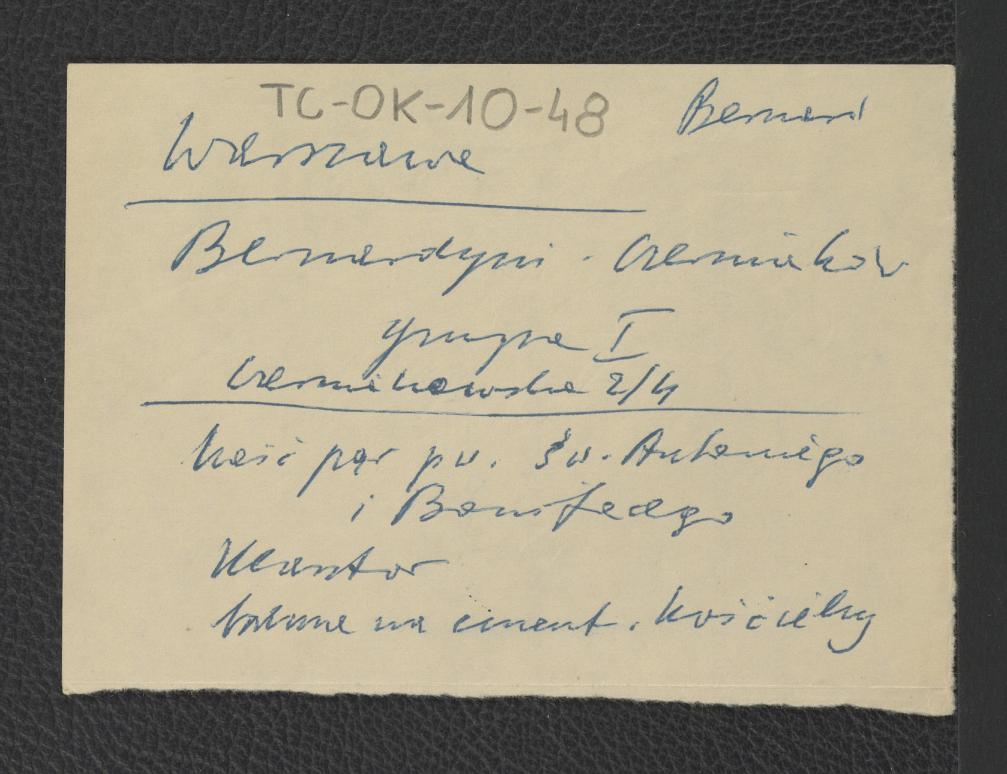 TC-OK-10-48
Bernard
Warszawa
Bernardyni - Czerniaków
grupa I
Czerniakowska 2/4
Kość par pw. św. Antoniego
i Bonifacego
Klasztor
brama na cment. kościelny